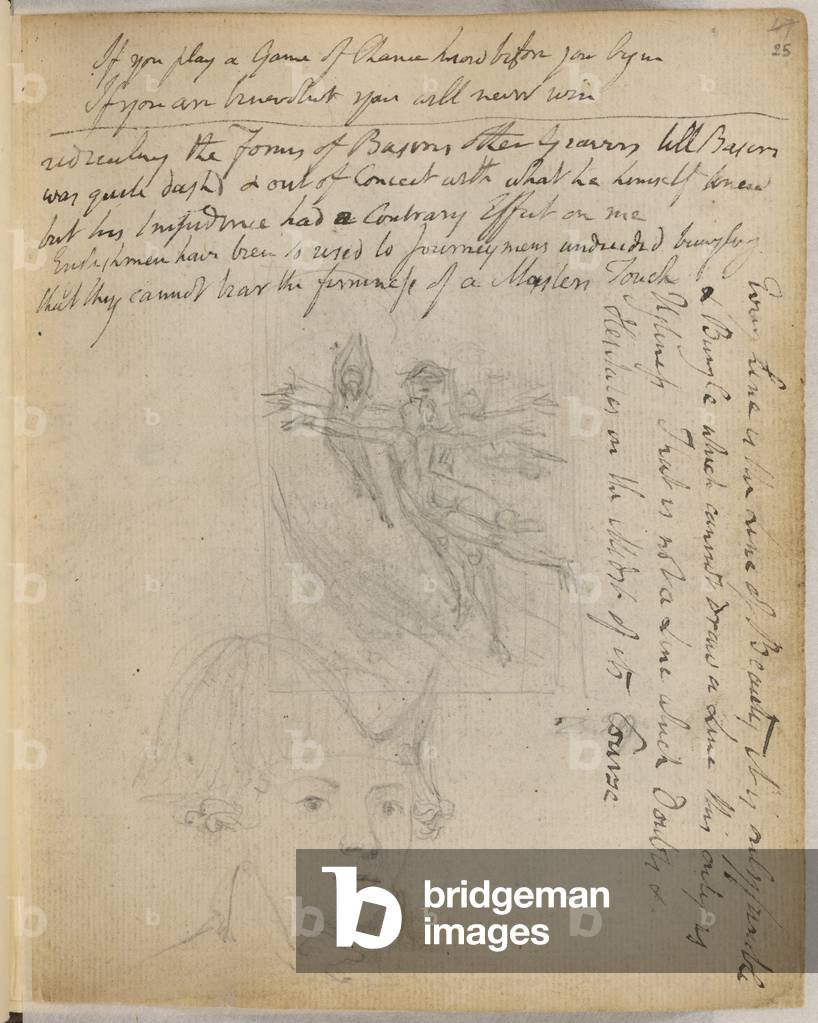 47
25
If you play a Game of Chance know before you begin
If you are benevolent you will never win
ridiculing the Forms of Basires other Gravers till Basire
was quite dashd & out of Conceit with what he himself knew
but his Impudence had a Contrary Effect on me
Englishmen have been so used to Journeymens undecided bungling
that they cannot bear the firmness of a Masters Touch
Every Line is the Line of Beauty it is only fumble
& Bungle which cannot draw a Line this only is
Ugliness That is not a Line which doubts &
Hesitates in the Midst of its Course
bridgeman
images